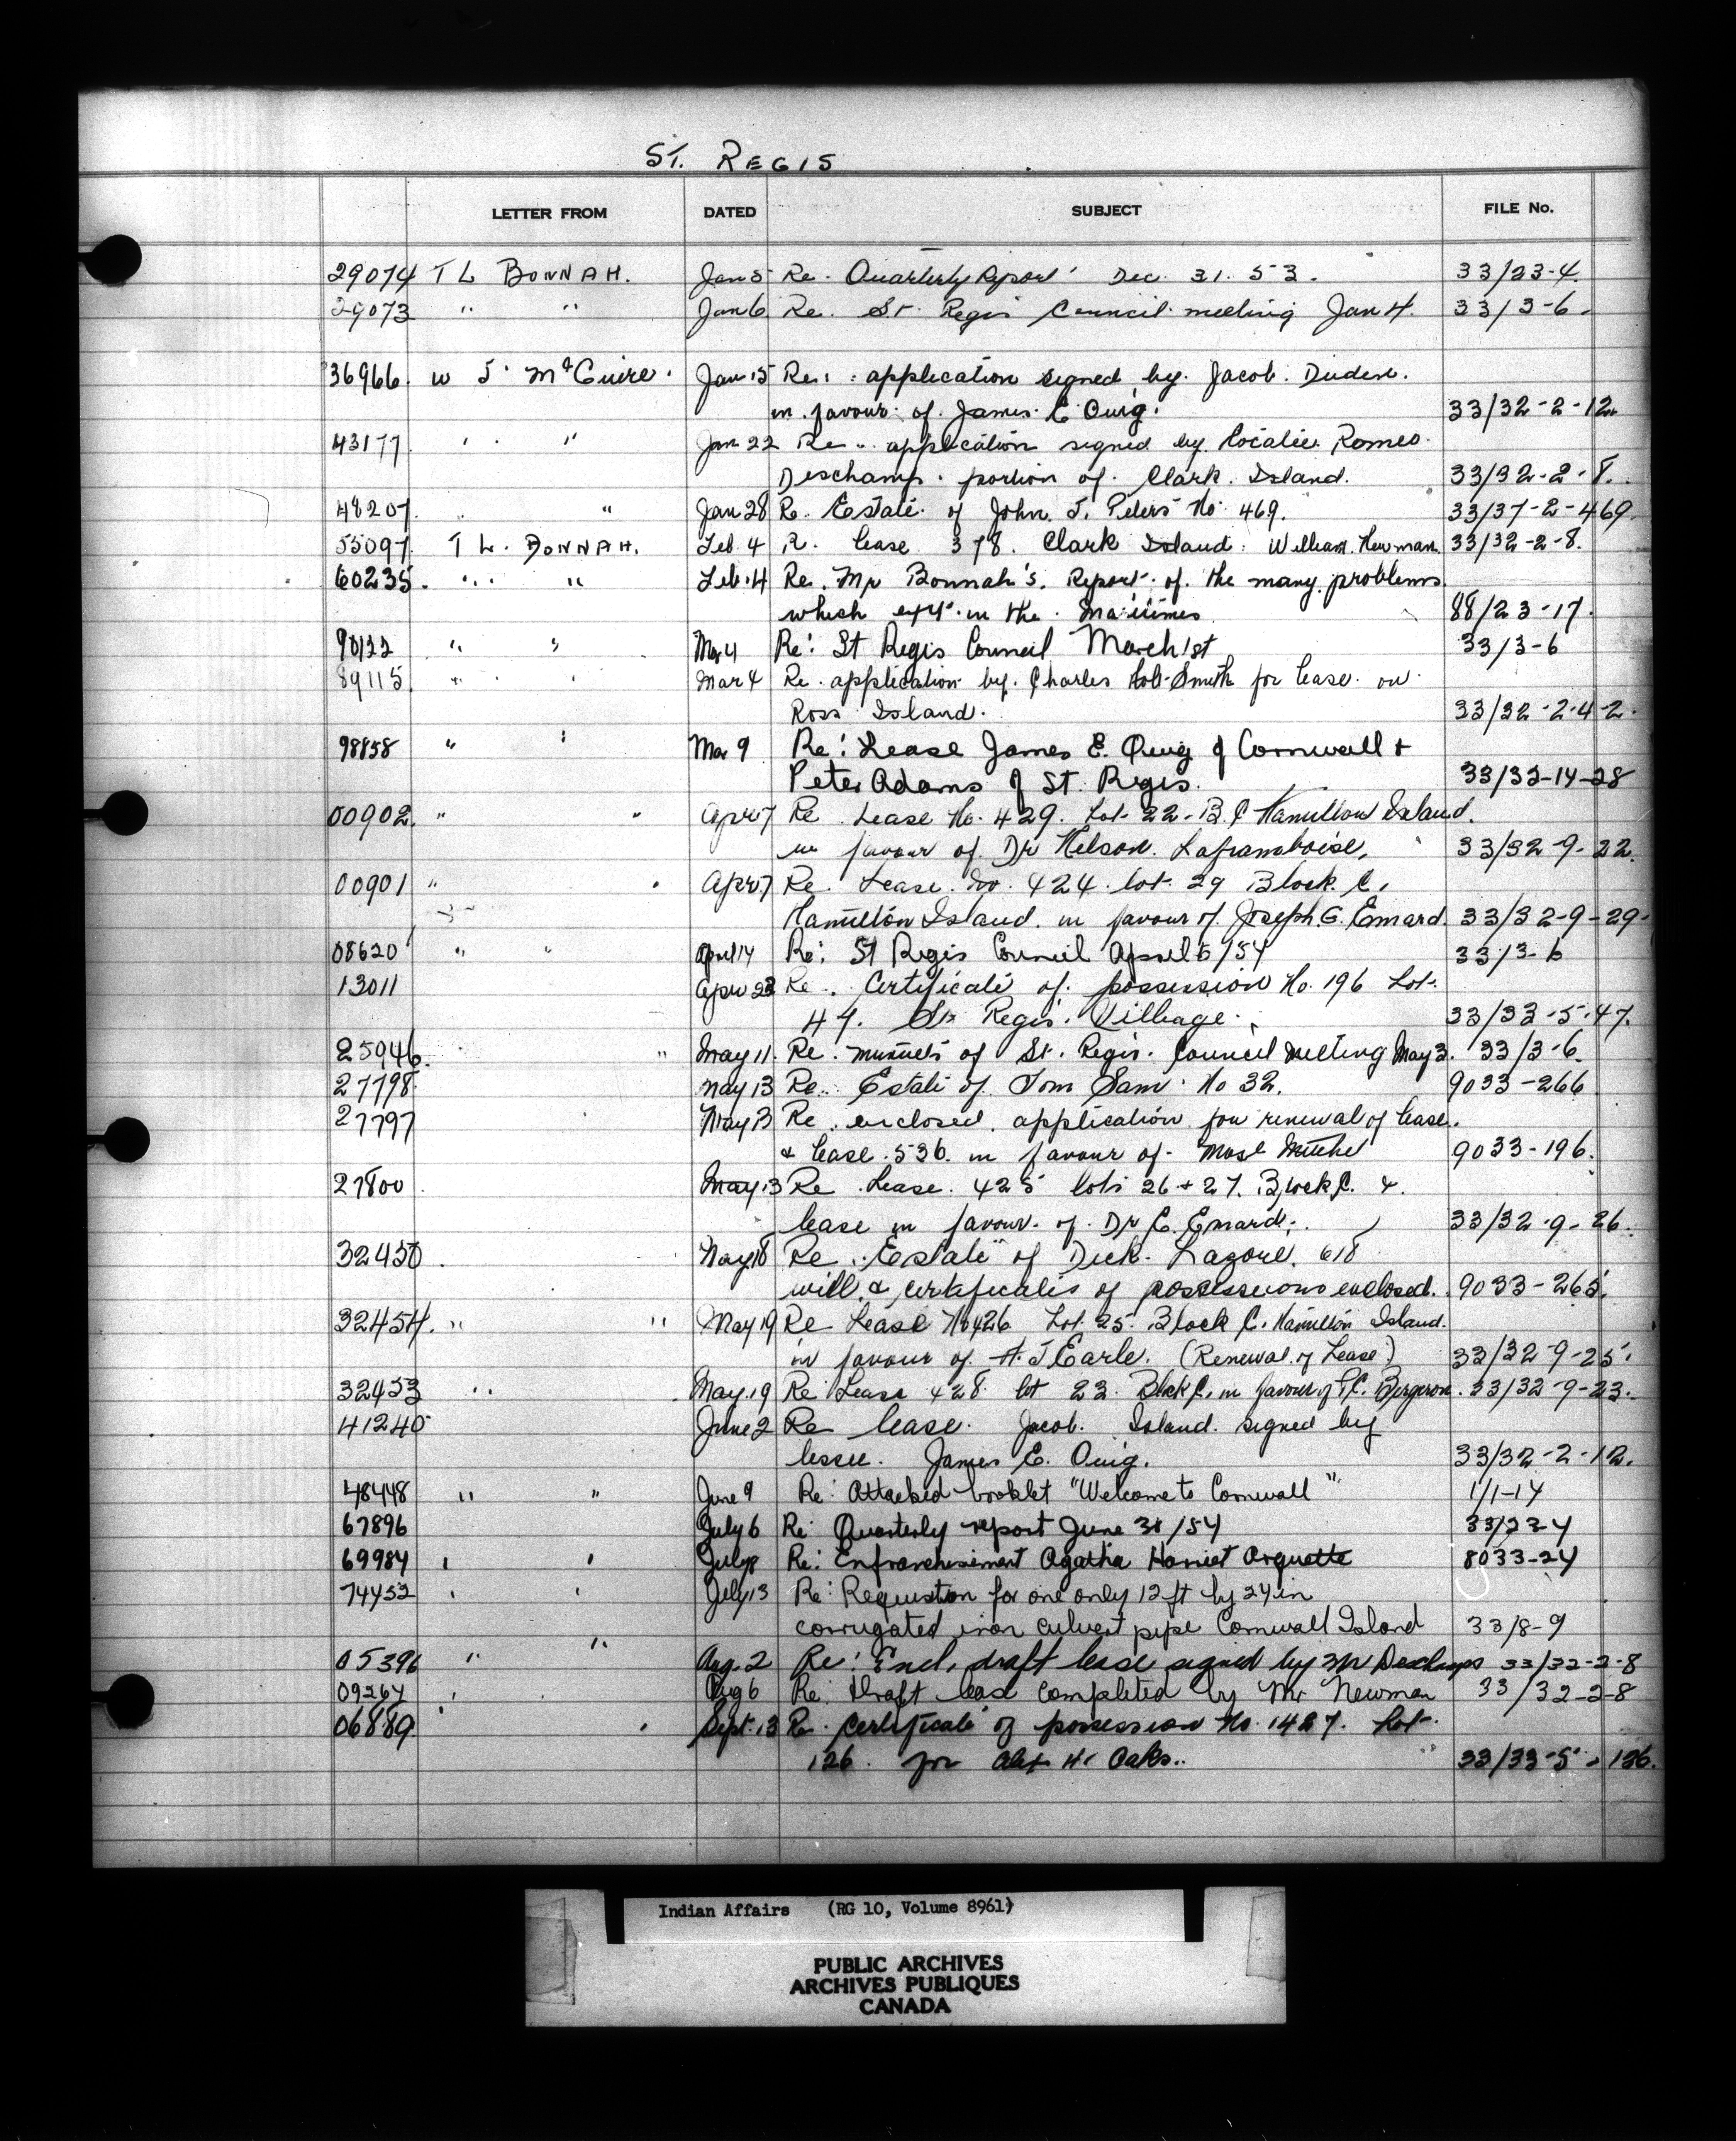 ST. REGIS
LETTER FROM DATED SUBJECT FILE No.
29074 T L BONNAH. Jan 5 Re. Quarterly Report Dec 31. 53. 33/23-4.
29073 " " Jan 6 Re. St. Regis Council meeting Jan 4. 33/3-6.
36966. W J. McGuire. Jan 15 Re: application signed by Jacob
in favour of James E Quig. 33/32-2-12.
43177 " " Jan 22 Re application signed by Romeo
Deschamp. portion of Clark Island. 33/32-2-8.
48207. " Jan 28 Re. Estate of John. J. Peters No 469. 33/37-2-469.
55097. T L. BONNAH. Feb. 4 R. lease 378. Clark Island. William Newman. 33/32-2-8.
60235. " " Feb. 14 Re. Mr Bonnah's. Report of the many problems
which in the Maritimes 88/23-17.
90122 " " Mar 4 Re: St Regis Council March 1st 33/3-6
89115. " " Mar 4 Re. application by Charles Smith for lease on
Ross Island. 33/32-2-4-2.
98858 " " Mar 9 Re: Lease James E. Quig of Cornwall +
Peter Adams of St. Regis. 33/32-14-28
00902. " " Apr 7 Re Lease No. 429. Lot 22-B. C Hamilton Island.
in favour of Dr Nelson. Laframboise. 33/32-9-22.
00901 " " Apr. 7 Re. Lease. No. 424. lot 29 Block. C.
Hamilton Island. in favour of Joseph. G. Emard. 33/32-9-29-
08620 " " April 14 Re: St Regis Council April 5/54 33/3-6
13011 Apr 23 Re. Certificate of possession No. 196 Lot.
47. St Regis. Village. 33/33-5-47.
25946. " May 11. Re. minutes of St. Regis. Council meeting May 3. 33/3-6.
27798 May 13 Re. Estate of Tom Sam. No 32. 9033-266
27797 May 13 Re. enclosed application for renewal of lease.
& lease. 536. in favour of Mose Mitchel 9033-196.
27800. May 13 Re Lease. 425 lots 26 + 27. Block C. &
lease in favour of Dr C. Emard. 33/32-9-26.
32450. May 18 Re. Estate of Dick. Lazore. 618
will & certificates of possessions enclosed. 9033-265.
32454. " " May 19 Re Lease No 426 Lot 25. Block C. Hamilton Island.
in favour of H. J Earle. (Renewal of Lease) 33/32-9-25.
32453 " May. 19 Re Lease 428 lot 23. Block C. in favour of Bergeron. 33/32-9-23.
41240 June 2 Re lease. Jacob. Island. signed by
lessee. James E. Quig. 33/32-2-12.
48448 " " June 9 Re: Attached booklet "Welcome to Cornwall" 1/1-14
67896 July 6 Re: Quarterly report June 30/54 33/23-4
69984 " " July 8 Re: Enfranchisement Agatha Harriet Arquette 8033-24
74452 " " July 13 Re: Requisition for one only 12 ft by 24 in
corrugated iron culvert pipe Cornwall Island 33/8-9
05396 " " Aug. 2 Re: Encl. draft lease signed by Mr Deschamps 33/32-2-8
09264 " Aug 6 Re: Draft lease completed by Mr Newman 33/32-2-8
06889. " " Sept. 13 Re. Certificate of possession No. 1427. Lot.
126. for Alex H. Oaks.. 33/33-5-126.
Indian Affairs (RG 10, Volume 8961)
PUBLIC ARCHIVES
ARCHIVES PUBLIQUES
CANADA